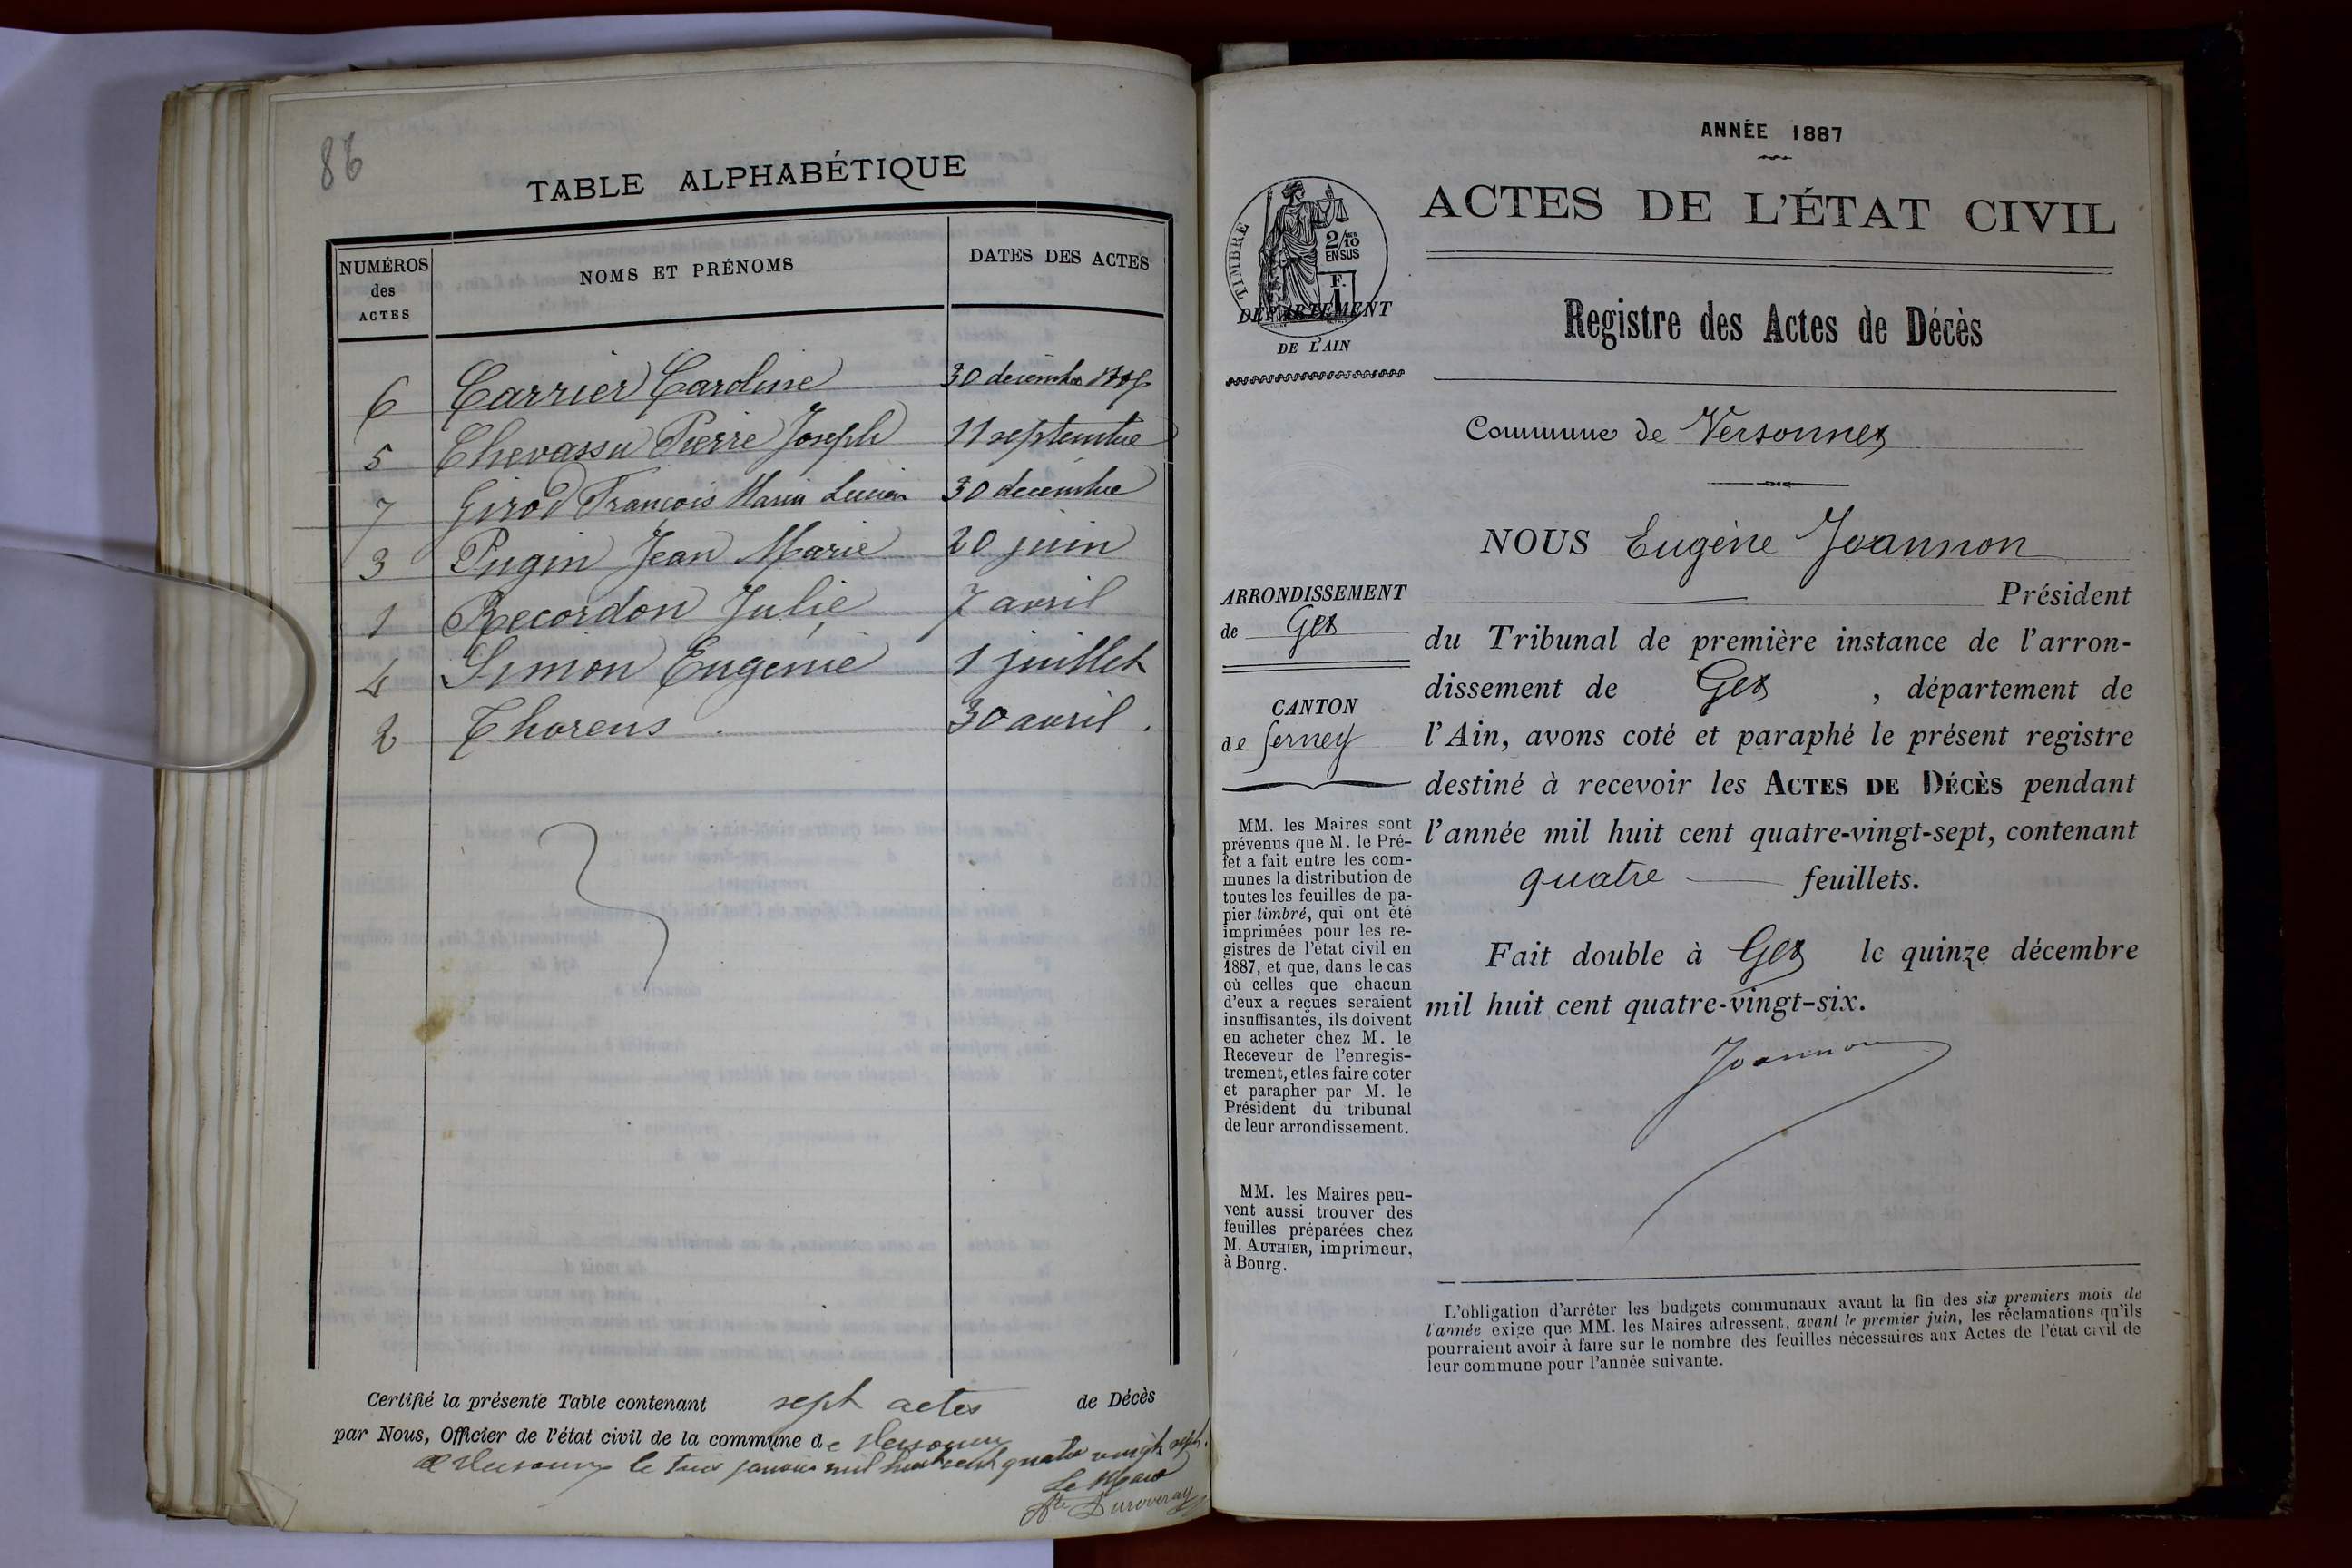 86
TABLE ALPHABÉTIQUE
NUMÉROS
des
ACTES
NOMS ET PRÉNOMS
DATES DES ACTES
6 Carrier Caroline 30 décembre 1886
5 Chevassu Pierre Joseph 11 septembre
7 Girod François Marie Lucien 30 décembre
3 Pugin Jean Marie 20 juin
1 Recordon Julie 7 avril
4 Simon Eugénie 1 juillet
2 Thorens 30 avril
Certifié la présente Table contenant sept actes de Décès
par Nous, Officier de l'état civil de la commune de Versonnex
à Versonnex le trois janvier mil huit cent quatre vingt sept.
Le Maire
Duroveray
ANNÉE 1887
ACTES DE L'ÉTAT CIVIL
TIMBRE
2/10
EN SUS
F.
1
DÉPARTEMENT
DE L'AIN
Registre des Actes de Décès
Commune de Versonnex
NOUS Eugène Joannon
Président
ARRONDISSEMENT
de Gex
CANTON
de Ferney
du Tribunal de première instance de l'arron-
dissement de Gex , département de
l'Ain, avons coté et paraphé le présent registre
destiné à recevoir les ACTES DE DÉCÈS pendant
l'année mil huit cent quatre-vingt-sept, contenant
quatre feuillets.
Fait double à Gex le quinze décembre
mil huit cent quatre-vingt-six.
Joannon
MM. les Maires sont
prévenus que M. le Pré-
fet a fait entre les com-
munes la distribution de
toutes les feuilles de pa-
pier timbré, qui ont été
imprimées pour les re-
gistres de l'état civil en
1887, et que, dans le cas
où celles que chacun
d'eux a reçues seraient
insuffisantes, ils doivent
en acheter chez M. le
Receveur de l'enregis-
trement, et les faire coter
et parapher par M. le
Président du tribunal
de leur arrondissement.
MM. les Maires peu-
vent aussi trouver des
feuilles préparées chez
M. AUTHIER, imprimeur,
à Bourg.
L'obligation d'arrêter les budgets communaux avant la fin des six premiers mois de
l'année exige que MM. les Maires adressent, avant le premier juin, les réclamations qu'ils
pourraient avoir à faire sur le nombre des feuilles nécessaires aux Actes de l'état civil de
leur commune pour l'année suivante.